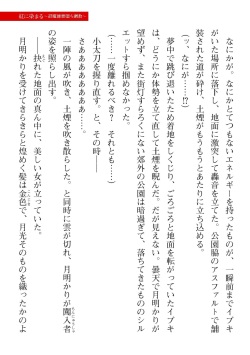 紅に染まる
なにかが。なにかとてつもないエネルギーを持ったものが、一瞬前までイブキ
がいた場所に落下し、地面に激突して轟音を立てた。公園脇のアスファルトで舗
装された道が砕け、土煙がもうもうとあたりに立ち込める。
（ッ、なにが……!?）
夢中で跳び退いたため着地をしくじり、ごろごろと地面を転がっていたイブキ
は、どうにか体勢を立て直して土煙を睨んだ。だが見えない。曇天で月明かりが
望めず、また街灯すらろくにない郊外の公園は暗過ぎて、落ちてきたもののシル
エットすら掴めなかった。
（……一度離れるべき？　それとも……）
小太刀を握り直す。と、その時――
さあああああああああ……
一陣の風が吹き、土煙を吹き散らした、と同時に雲が切れ、月明かりが闖入者
の姿を照らし出す。
――抉れた地面の真ん中に、美しい女が立っていた。
月明かりを受けてきらきらと煌めく髪は金色で、月光そのものを織ったかのよ